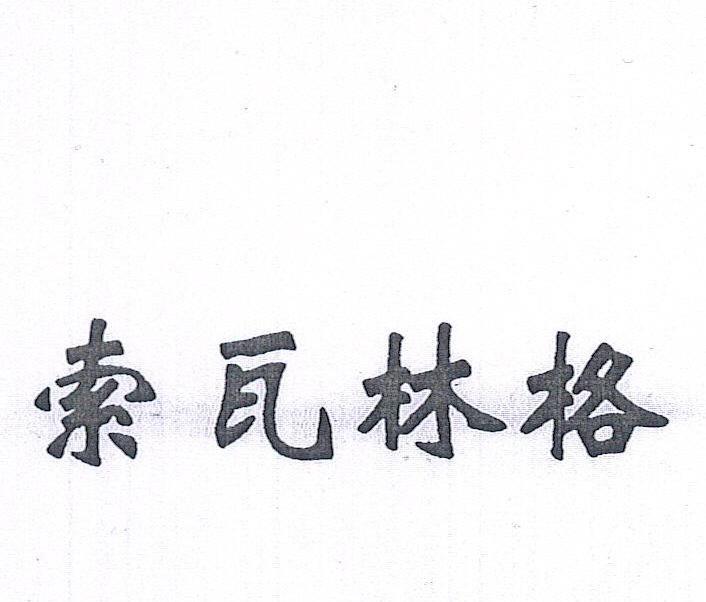 索瓦林格